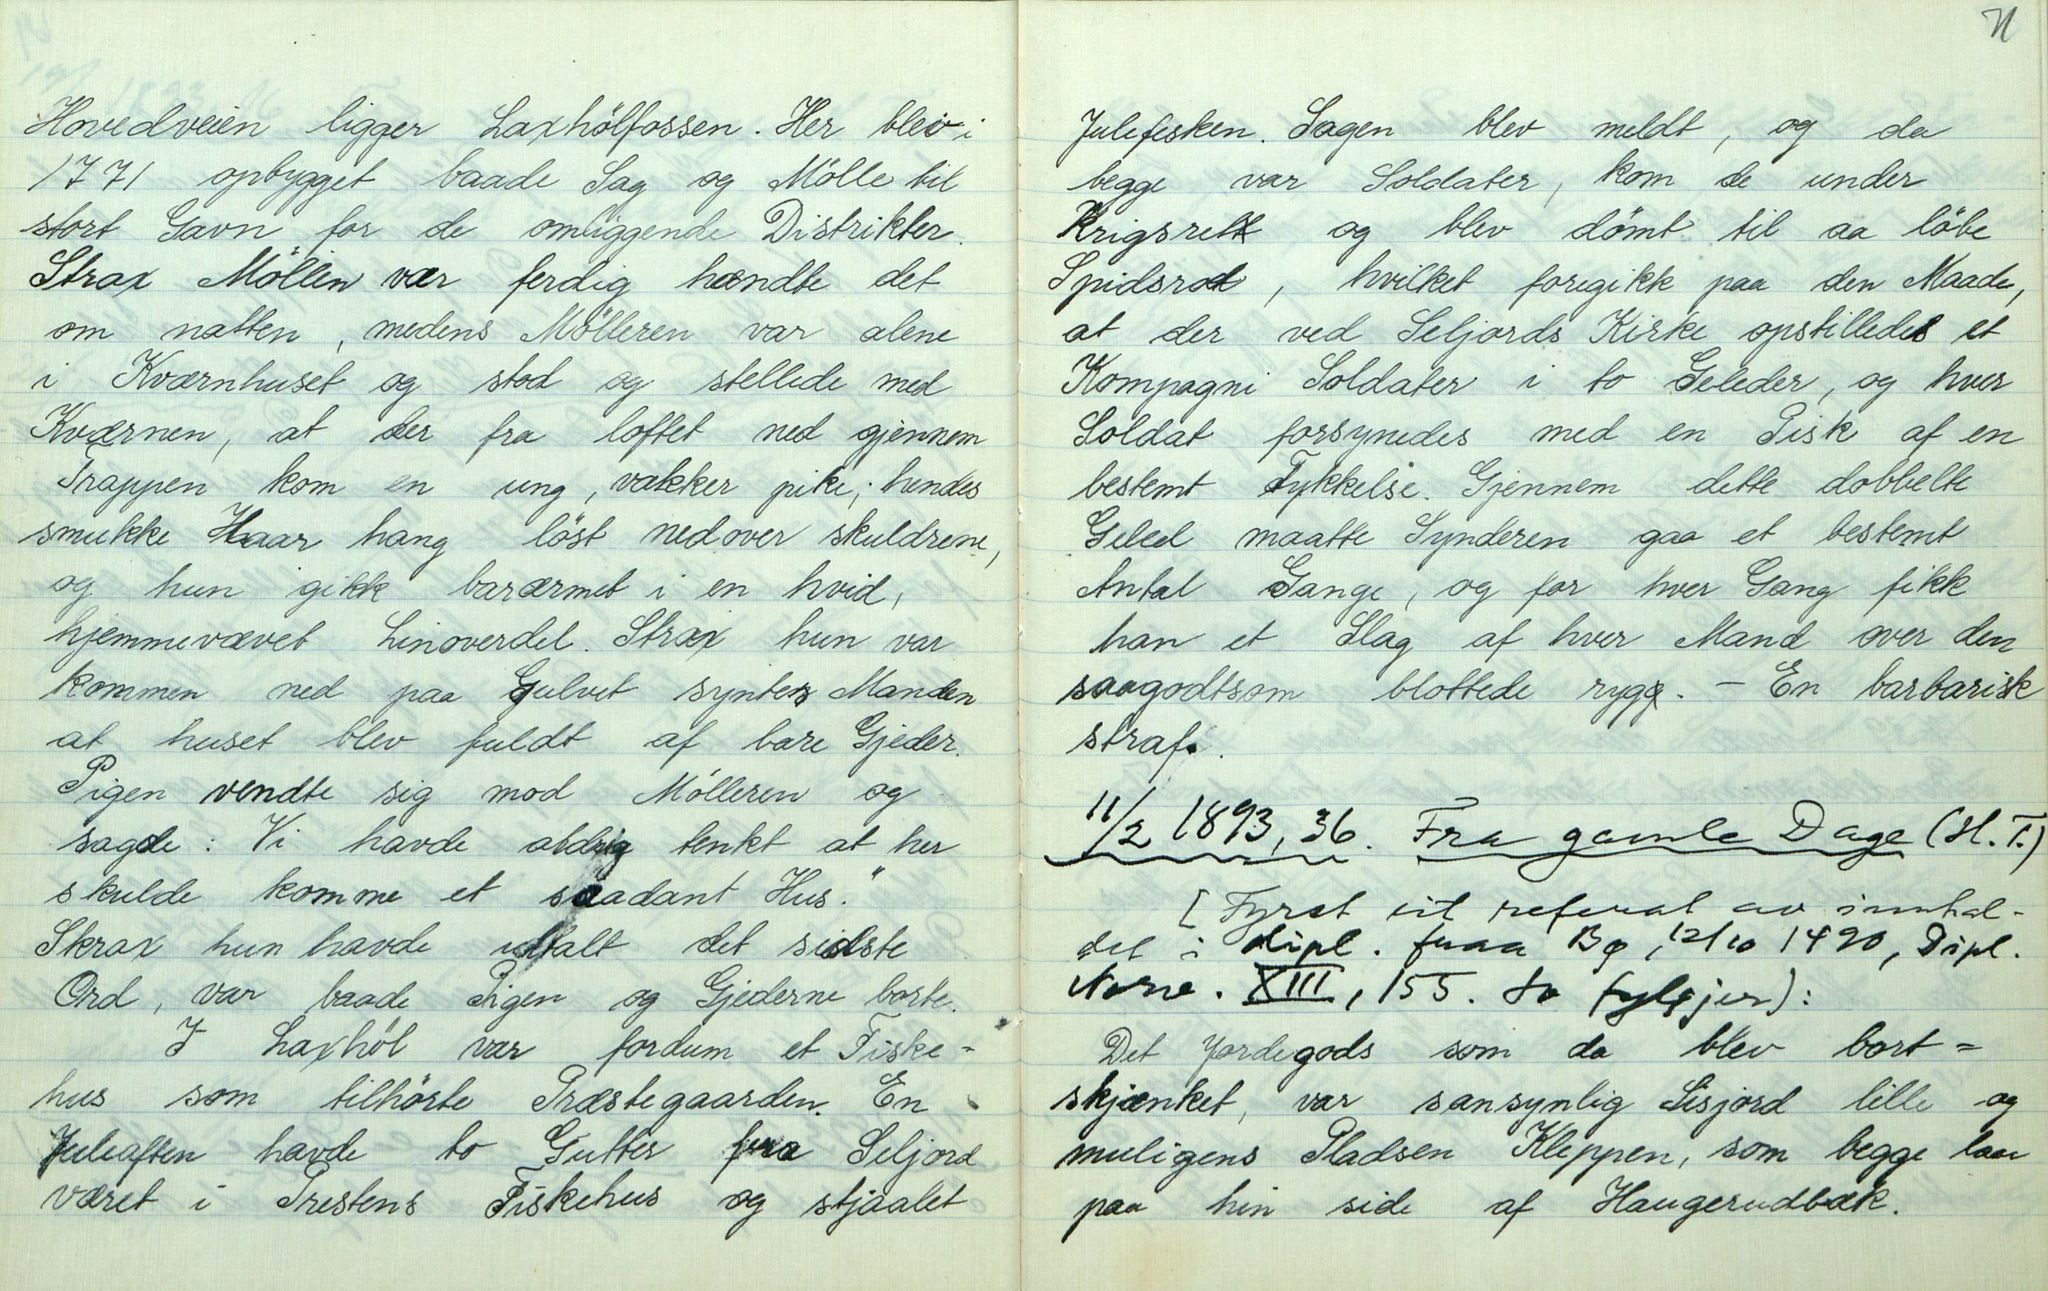 Hovedveien ligger Laxhölfossen. Her blev i
1771 opbygget baade Sag og Mölle til
stort Gavn for de omliggende Distrikter.
Strax Möllen var ferdig hændte det
om natten, medens Mölleren var alene
i Kværnhuset og stod og stellede med
Kværnen, at der fra loftet ned gjennem
Trappen kom en ung, vakker pike; hendes
smukke Haar hang löst nedover skuldrene,
og hun gikk barærmet i en hvid,
hjemmevævet Linoverdel. Strax hun var
kommen ned paa Gulvet syntes Manden
at huset blev fuldt af bare Gjeder.
Pigen vendte sig mod Mölleren og
sagde: Vi havde aldrig tenkt at her
skulde komme et saadant Hus."
Skrax hun havde uttalt det sidste
Ord, var baade Pigen og Gjederne borte.
I Laxhöl var fordum et Fiske=
hus som tilhörte Præstegaarden. En
Juleaften havde to Gutter fra Seljord
været i Prestens Fiskehus og stjaalet
71
Julefisken. Sagen blev meldt, og da
begge var Soldater, kom de under
Krigsrett og blev dömt til aa löbe
Spidsrod, hvilket foregikk paa den Maade,
at der ved Seljords Kirke opstilledes et
Kompagni Soldater i to Geleder, og hver
Soldat forsynedes med en Pisk af en
bestemt Tykkelse. Gjennem dette dobbelte
Geled maatte Synderen gaa et bestemt
Antal Gange, og for hver Gang fikk
han et Slag af hver Mand over den
saagodtsom blottede rygg. - En barbarisk
straf.
11/2 1893, 36. Fra gamle Dage (H. T.)
[Fyrst eit referat av innhal-
det i dipl. fraa Bø, 12/10 1490, Dipl.
Norv. XIII, 155. So fylgjer):
Det Jordegods som da blev bort=
skjænket, var sansynlig Lisjord lille og
muligens Pladsen Kleppen, som begge laa
paa hin side af Haugerudbæk.